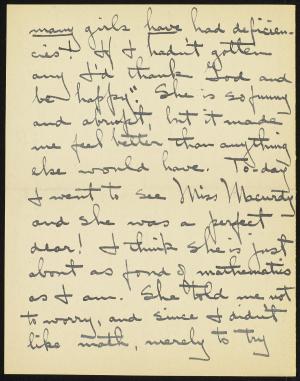 many girls have had deficien-
cies! "If I hadn't gotten
any I'd thank God and
be happy". She is so funny
and abrupt but it made
me feel better than anything
else would have. To-day
I went to see Miss Macurdy
and she was a perfect
dear! I think she is just
about as fond of mathematics
as I am. She told me not
to worry, and since I didn't
like math, merely to try